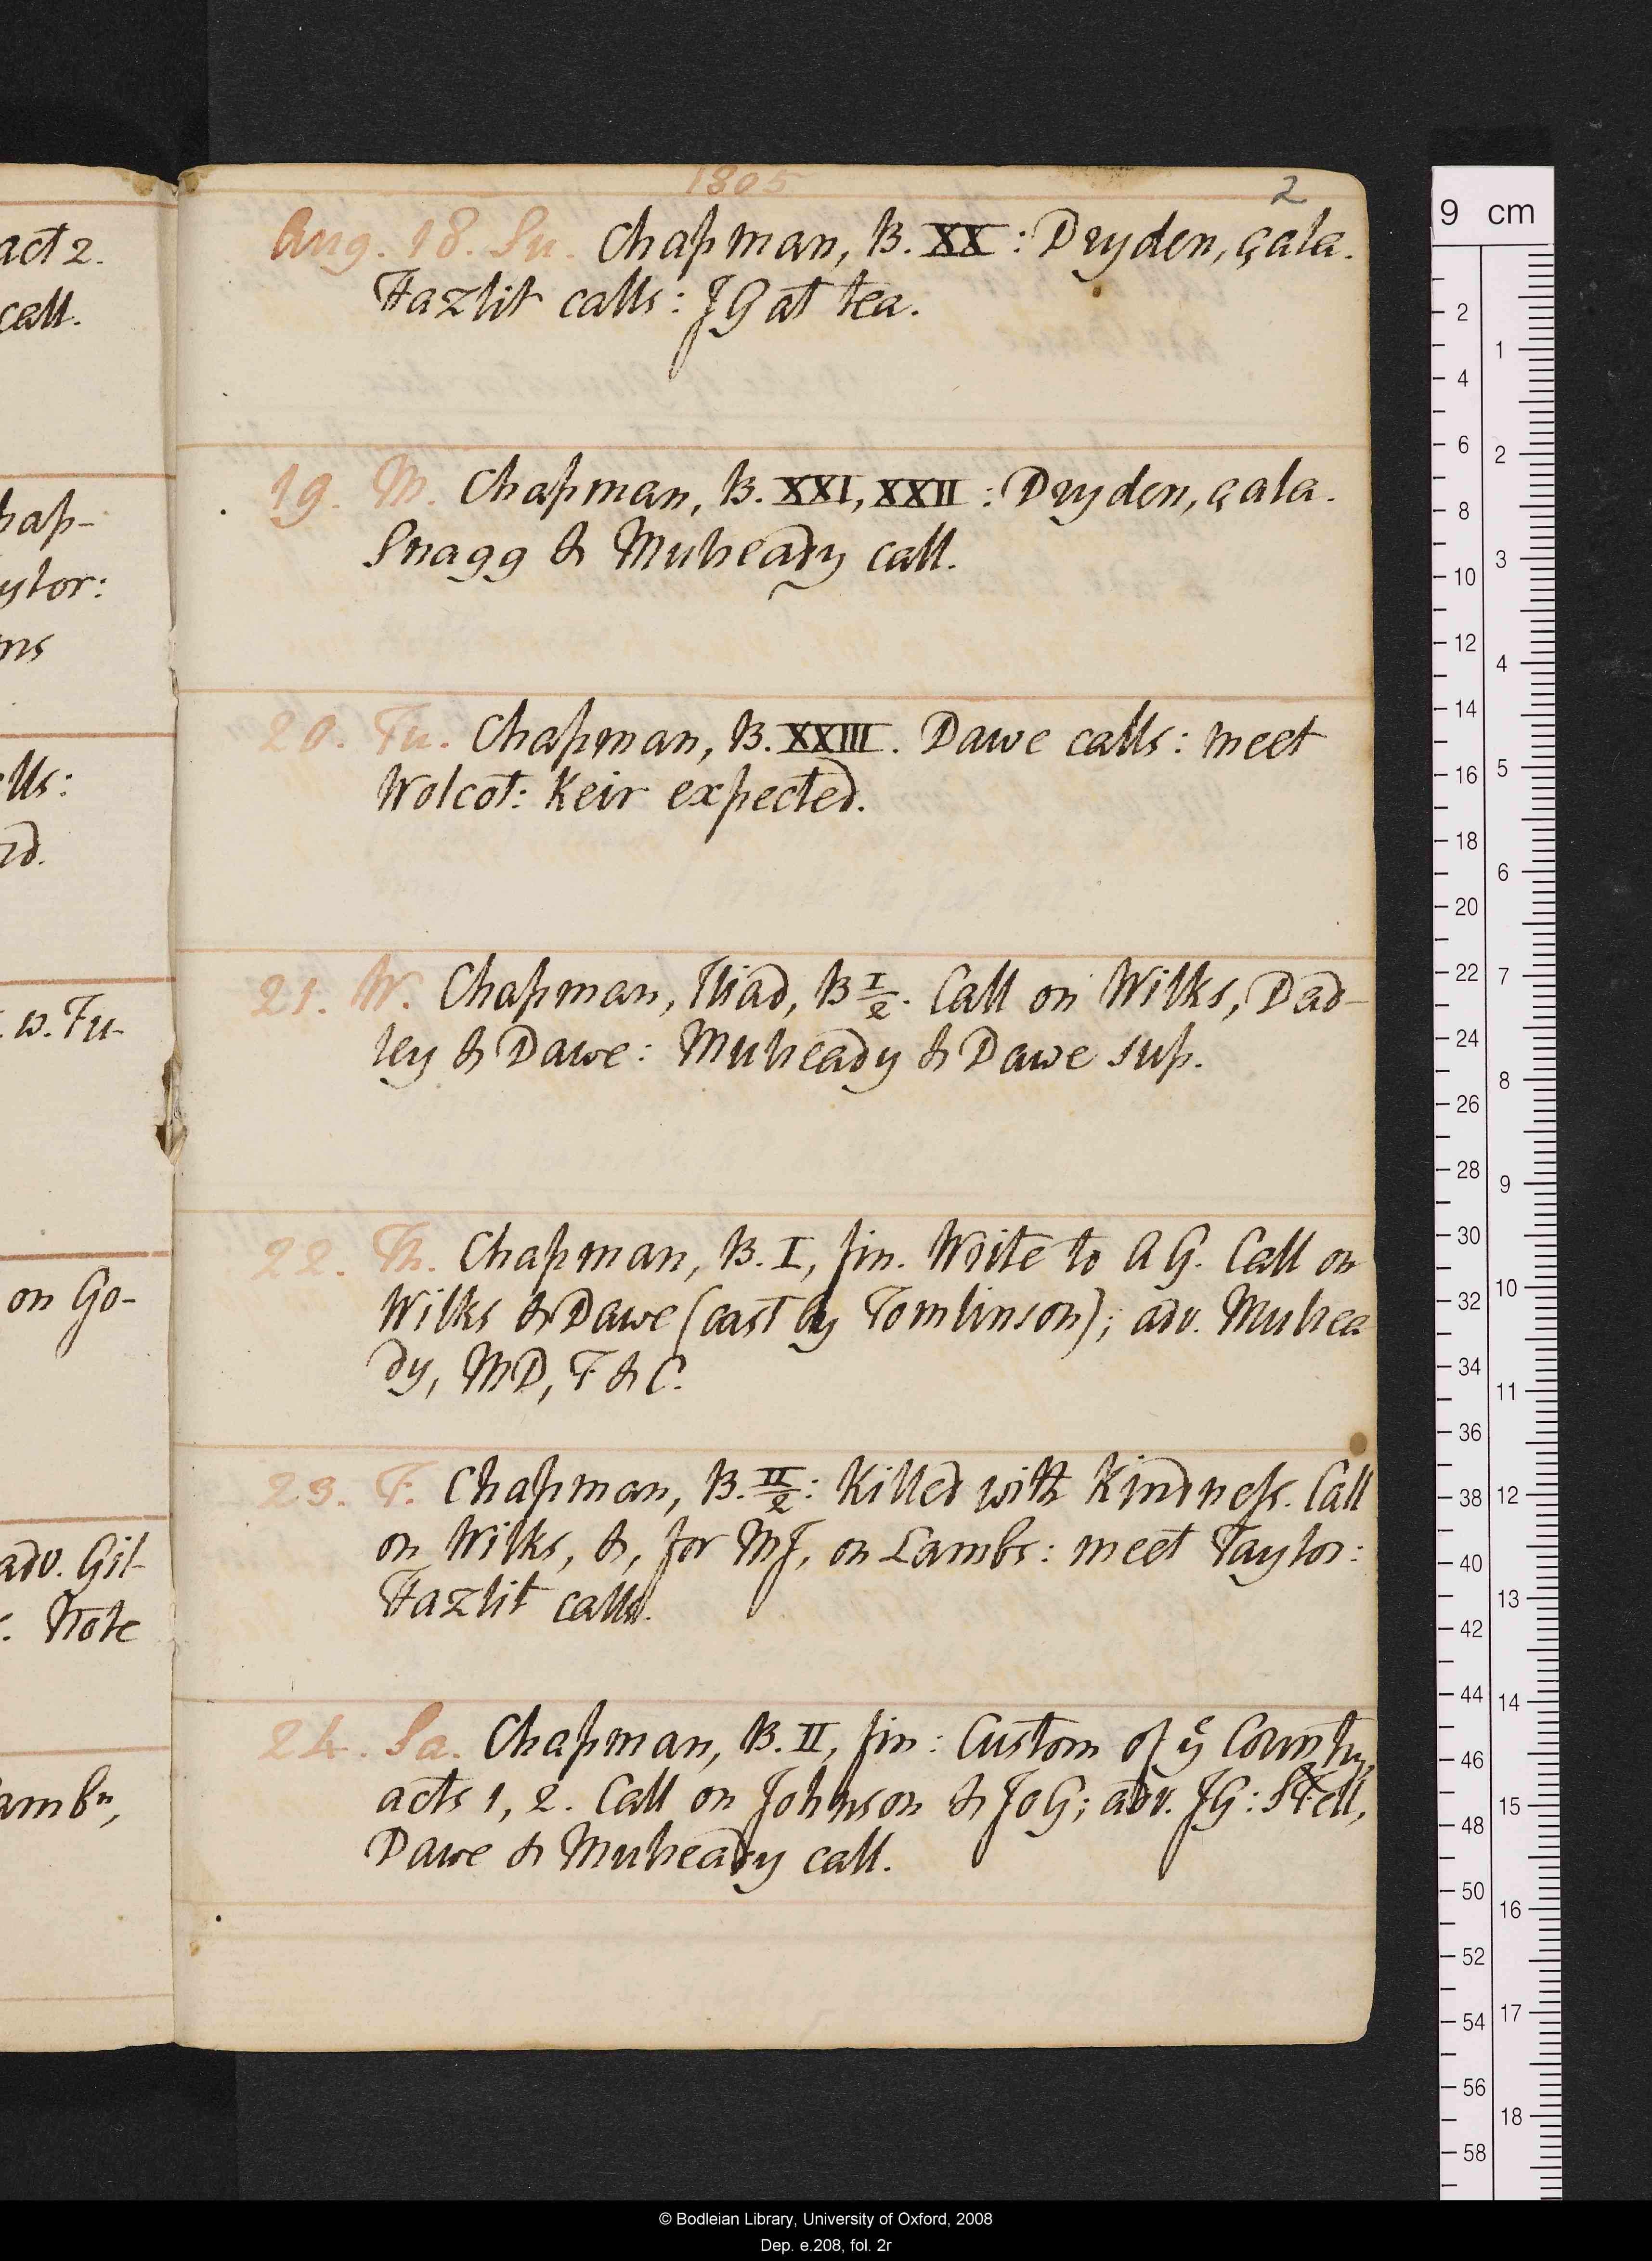 act 2.
call.
hap-
ylor:
ms
lls:
rd.
. w. Tu-
on Go-
adv. Gil-
. Note
ambs,
1805
2
Aug. 18. Su. Chapman, B. XX: Dryden, çala.
Hazlit calls: J G at tea.
19. M. Chapman, B. XXI, XXII: Dryden, çala.
Snagg & Mulready call.
20. Tu. Chapman, B. XXIII. Dawe calls: meet
Wolcot: Keir expected.
21. W. Chapman, Iliad, B I/2. Call on Wilks, Dad-
ley & Dawe: Mulready & Dawe sup.
22. Th. Chapman, B. I, fin. Write to A G. Call on
Wilks & Dawe (cast by Tomlinson); adv. Mulrea
dy, MD, T & C.
23. F. Chapman, B. II/2: Killed with Kindness. Call
on Wilks, &, for MJ, on Lambs: meet Taylor:
Hazlit calls.
24. Sa. Chapman, B. II, fin: Custom of ye Country,
acts 1, 2. Call on Johnson & JoG; adv. JG:
Dawe & Mulready call.
9 cm
2
4
6
8
10
12
14
16
18
20
22
24
26
28
30
32
34
36
38
40
42
44
46
48
50
52
54
56
58
1
2
3
4
5
6
7
8
9
10
11
12
13
14
15
16
17
18
© Bodleian Library, University of Oxford, 2008
Dep. e.208, fol. 2r